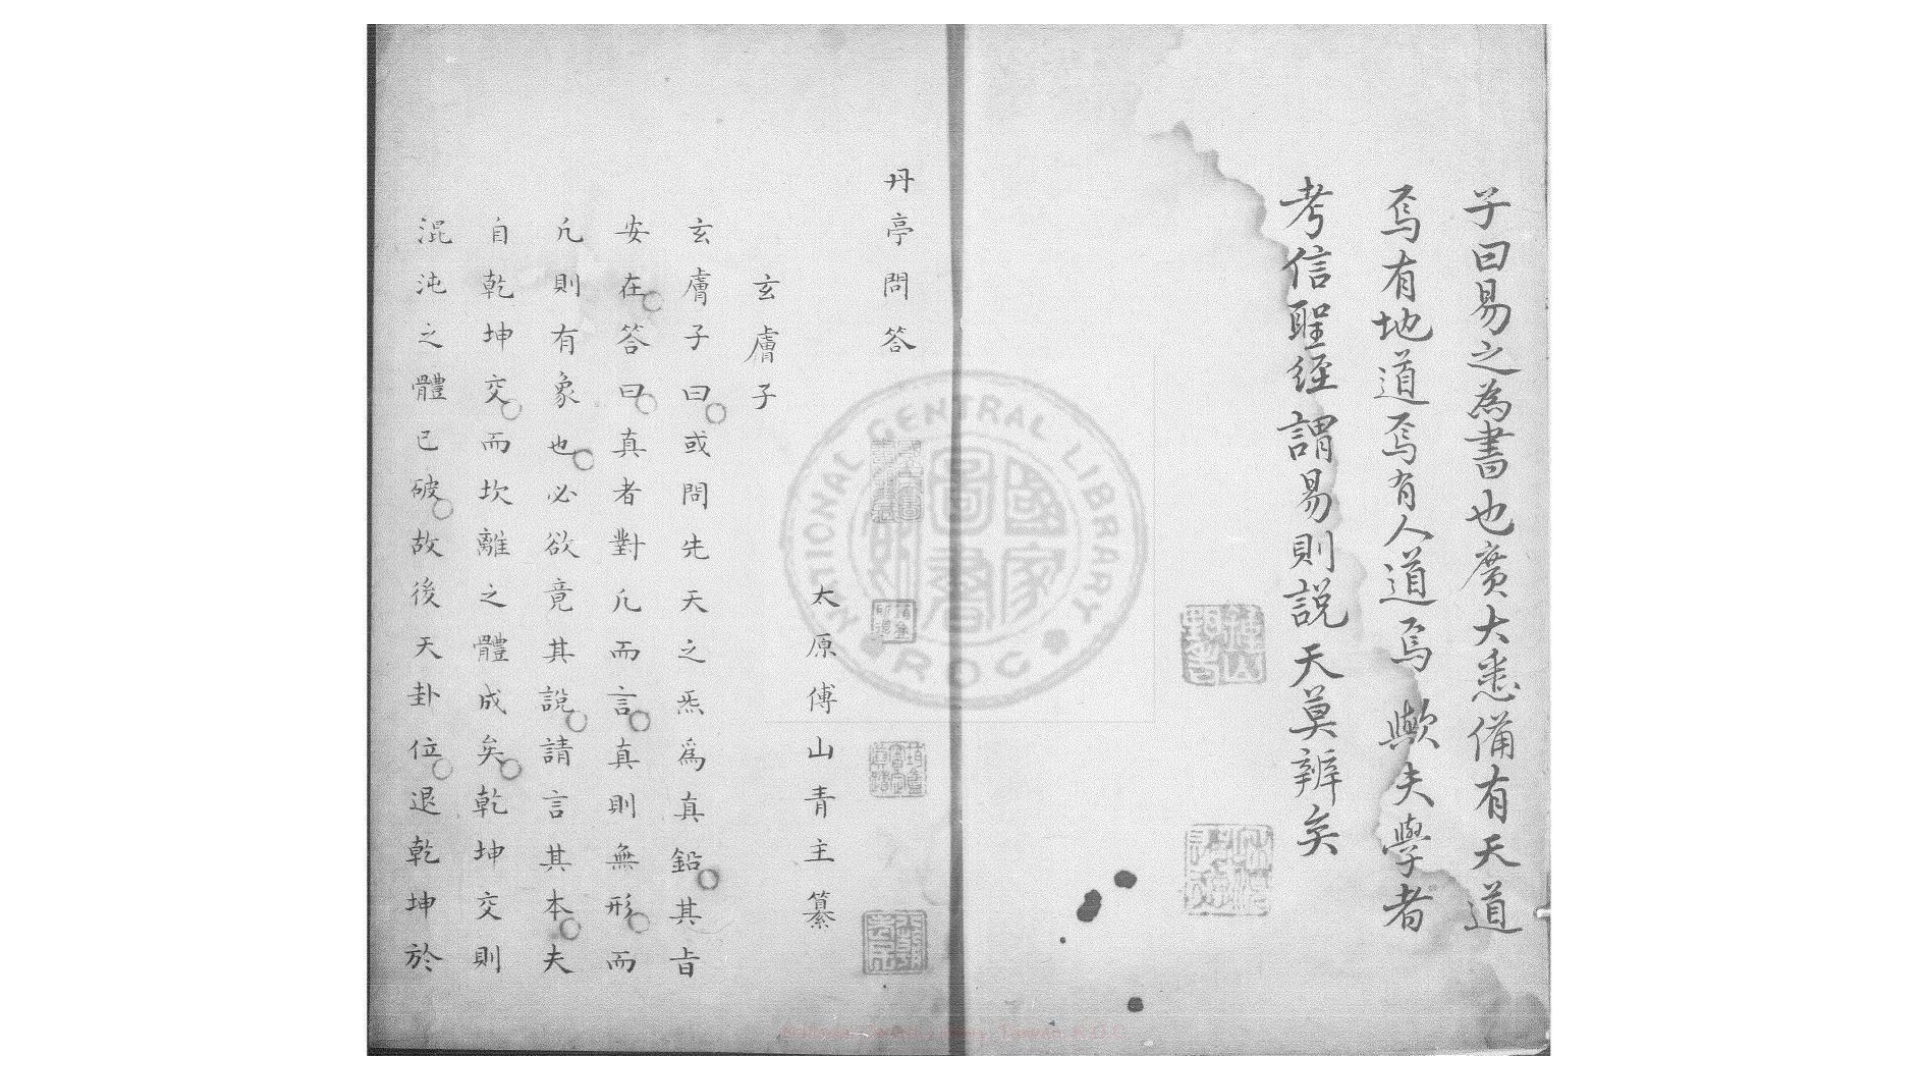 子曰易之為書也廣大悉備有天道
焉有地道焉有人道焉歟夫學者
考信聖経謂易則説天莫辨矣
丹亭問答
太原傅山青主纂
玄膚子
玄膚子曰或問先天之炁爲真鉛其旨
安在答曰真者對凡而言真則無形而
凡則有象也必欲竟其説請言其本夫
自乾坤交而坎離之體成矣乾坤交則
混沌之體已破故後天卦位退乾坤於
NATIONAL CENTRAL LIBRARY
ROC
國家圖書館